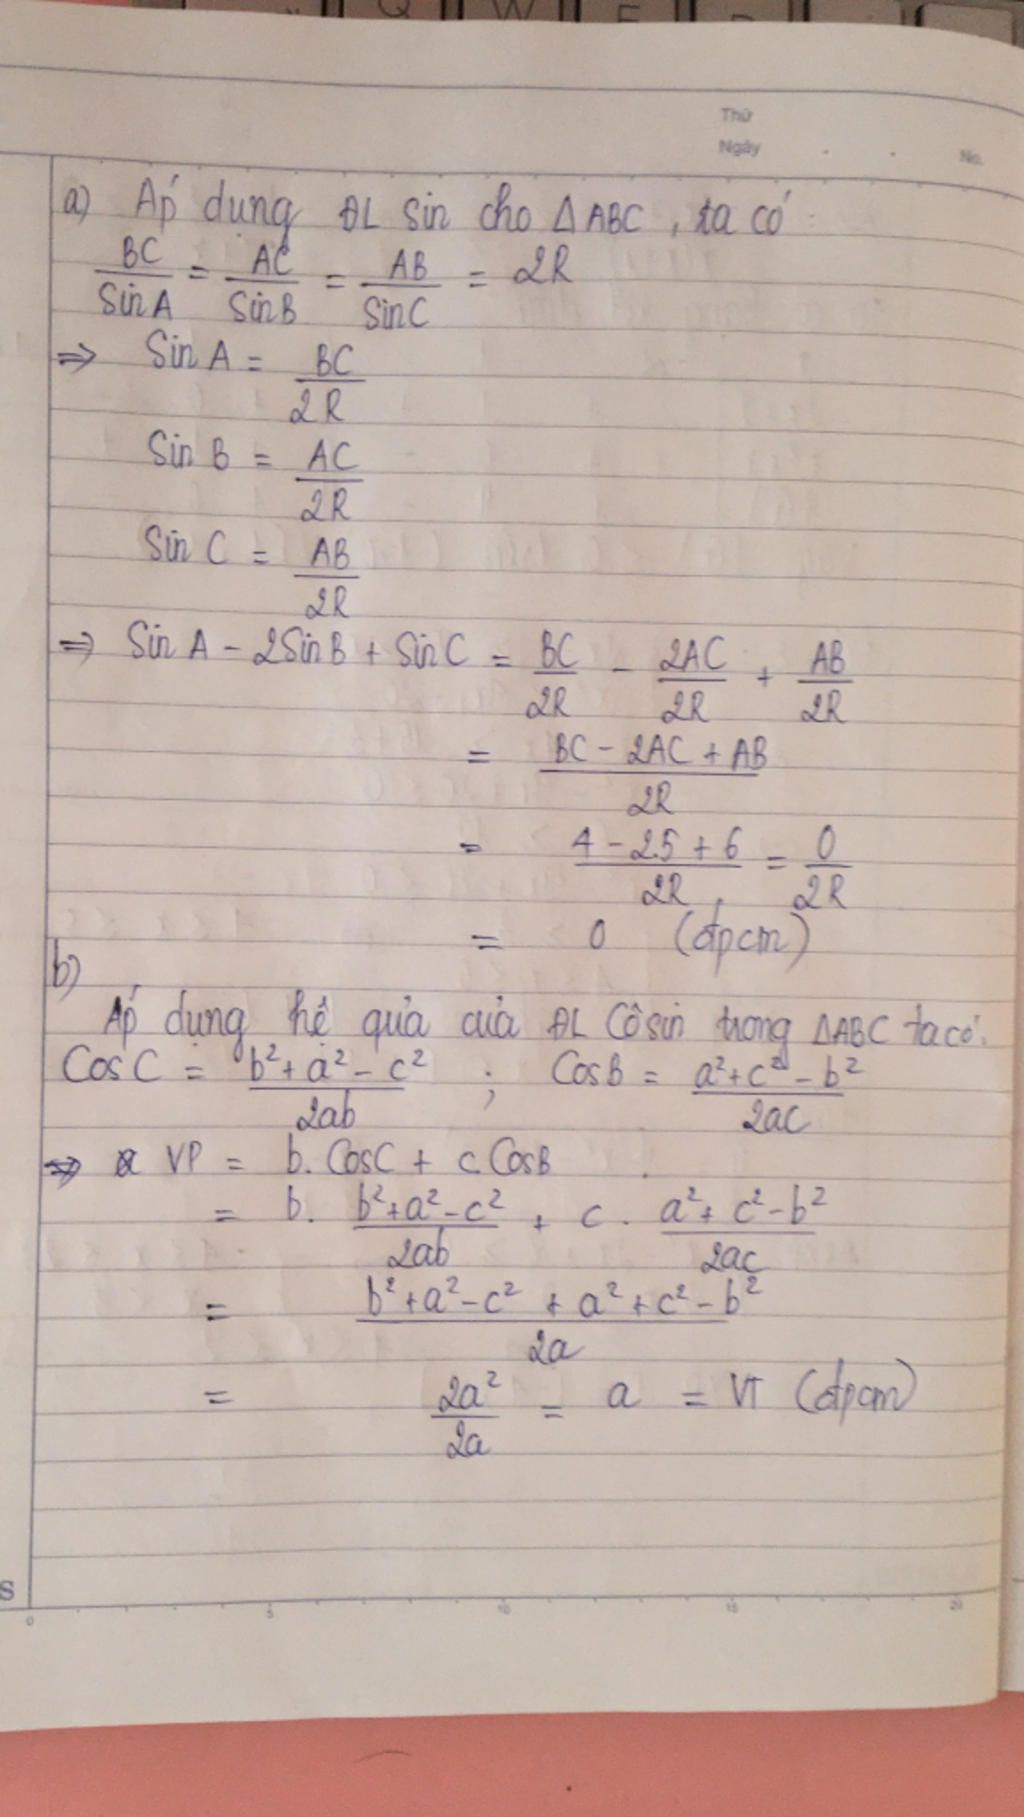 Thứ
Ngày . . No.
a) Áp dụng ĐL Sin cho ΔABC, ta có:
BC/SinA = AC/SinB = AB/SinC = 2R
⇒ Sin A = BC/2R
Sin B = AC/2R
Sin C = AB/2R
⇒ Sin A - 2SinB + Sin C = BC/2R - 2AC/2R + AB/2R
= (BC - 2AC + AB)/2R
= (4 - 2.5 + 6)/2R = 0/2R
= 0 (đpcm)
b)
Áp dụng hệ quả của ĐL Côsin trong ΔABC ta có:
Cos C = (b² + a² - c²)/2ab ; CosB = (a² + c² - b²)/2ac
⇒ VP = b. CosC + c. CosB
= b. (b² + a² - c²)/2ab + c . (a² + c² - b²)/2ac
= (b² + a² - c² + a² + c² - b²)/2a
= 2a²/2a = a = VT (đpcm)
S
0 5 10 15 20